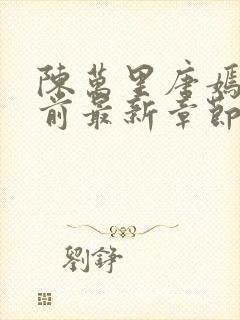 陳萬里唐嫣
前最新章節
劉錚